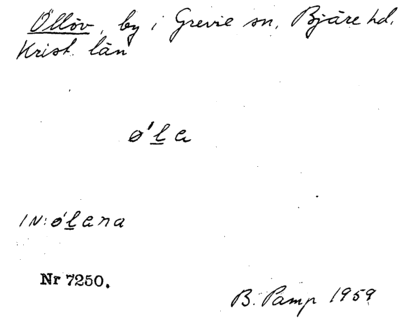 Ollöv, by i Grevie sn, Bjäre hd.
Krist. län
ø'ḻa
IN: ø'ḻana
Nr 7250.
B. Pamp 1959